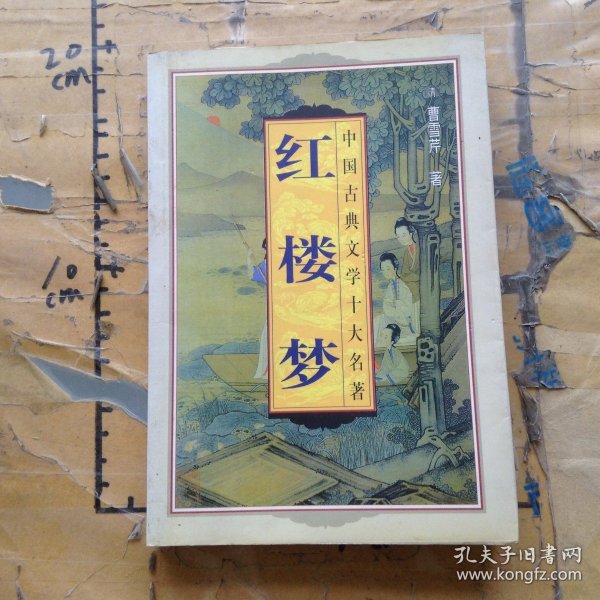 20
cm
10
cm
中国古典文学十大名著
红楼梦
清 曹雪芹 著
孔夫子旧书网
www.kongfz.com